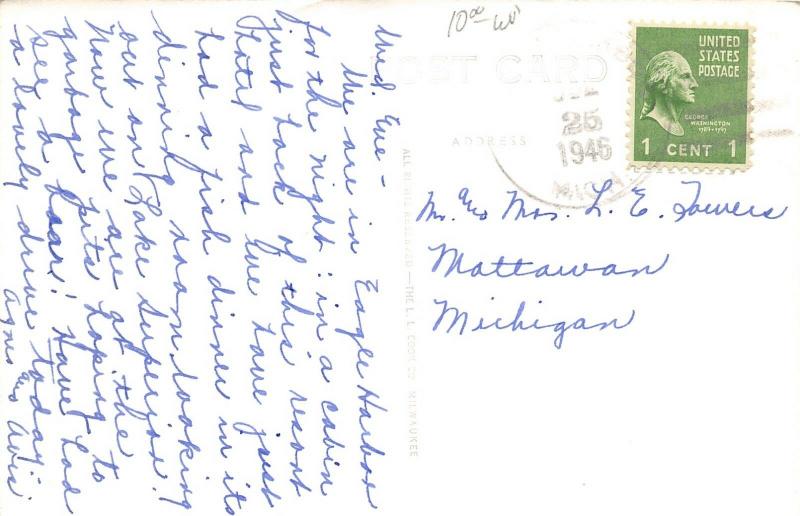 Wed. Eve -
We are in Eagle Harbor
for the night: in a cabin
just back of this resort
Hotel and we have just
had a fish dinner in its
dinning room looking
out on Lake Superior.
Now we are at the
garbage pits hoping to
see a bear! Have had
a lovely drive today.
Agnes and Avis
10.00
POST CARD
ADDRESS
25
1946
MICH.
UNITED
STATES
POSTAGE
GEORGE
WASHINGTON
1789-1797
1 CENT 1
Mr. and Mrs. L. E. Towers
Mattawan
Michigan
ALL RIGHTS RESERVED — THE L. L. COOK CO. MILWAUKEE